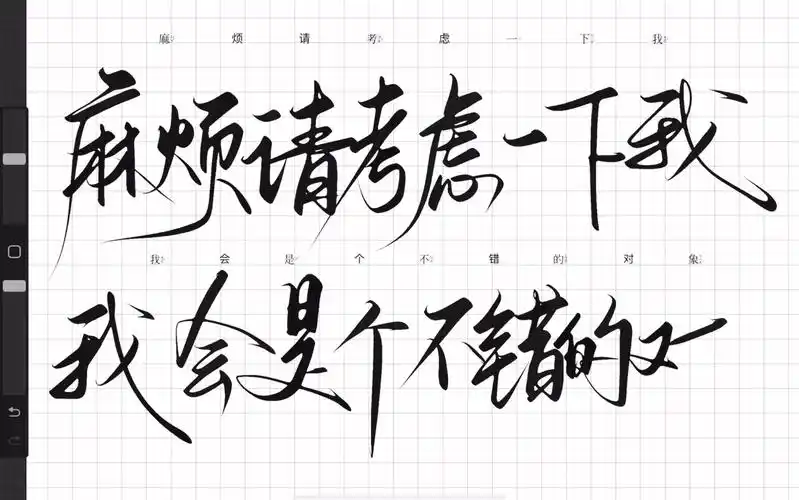 麻烦请考虑一下我
麻烦请考虑一下我
我会是个不错的对象
我会是个不错的对